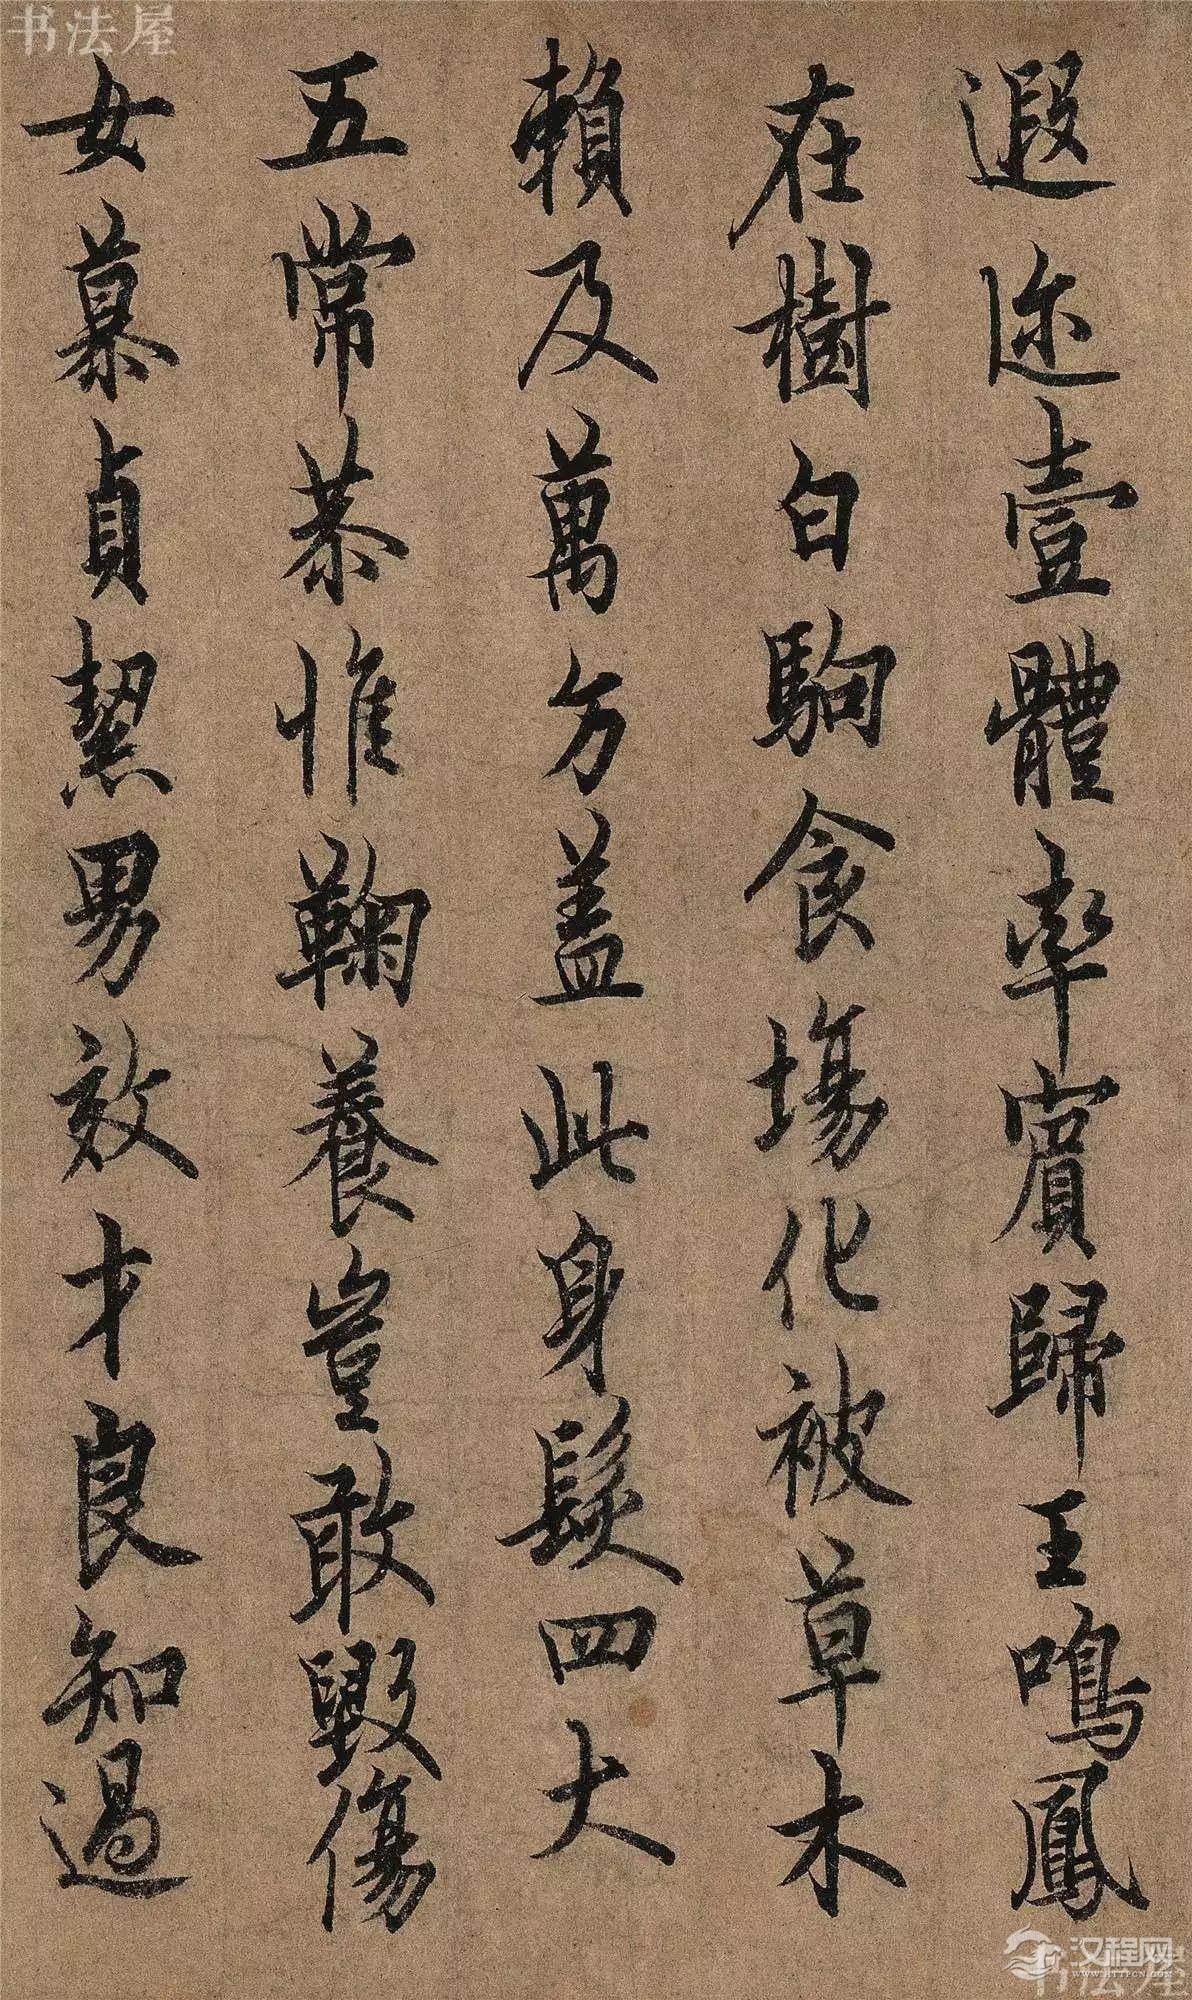 遐迩壹體率賓歸王鳴鳳
在樹白駒食場化被草木
賴及萬方盖此身髮四大
五常恭惟鞠養豈敢毀傷
女慕貞絜男效才良知過
书法屋
汉程网
WWW.HTTPCN.COM
书法屋